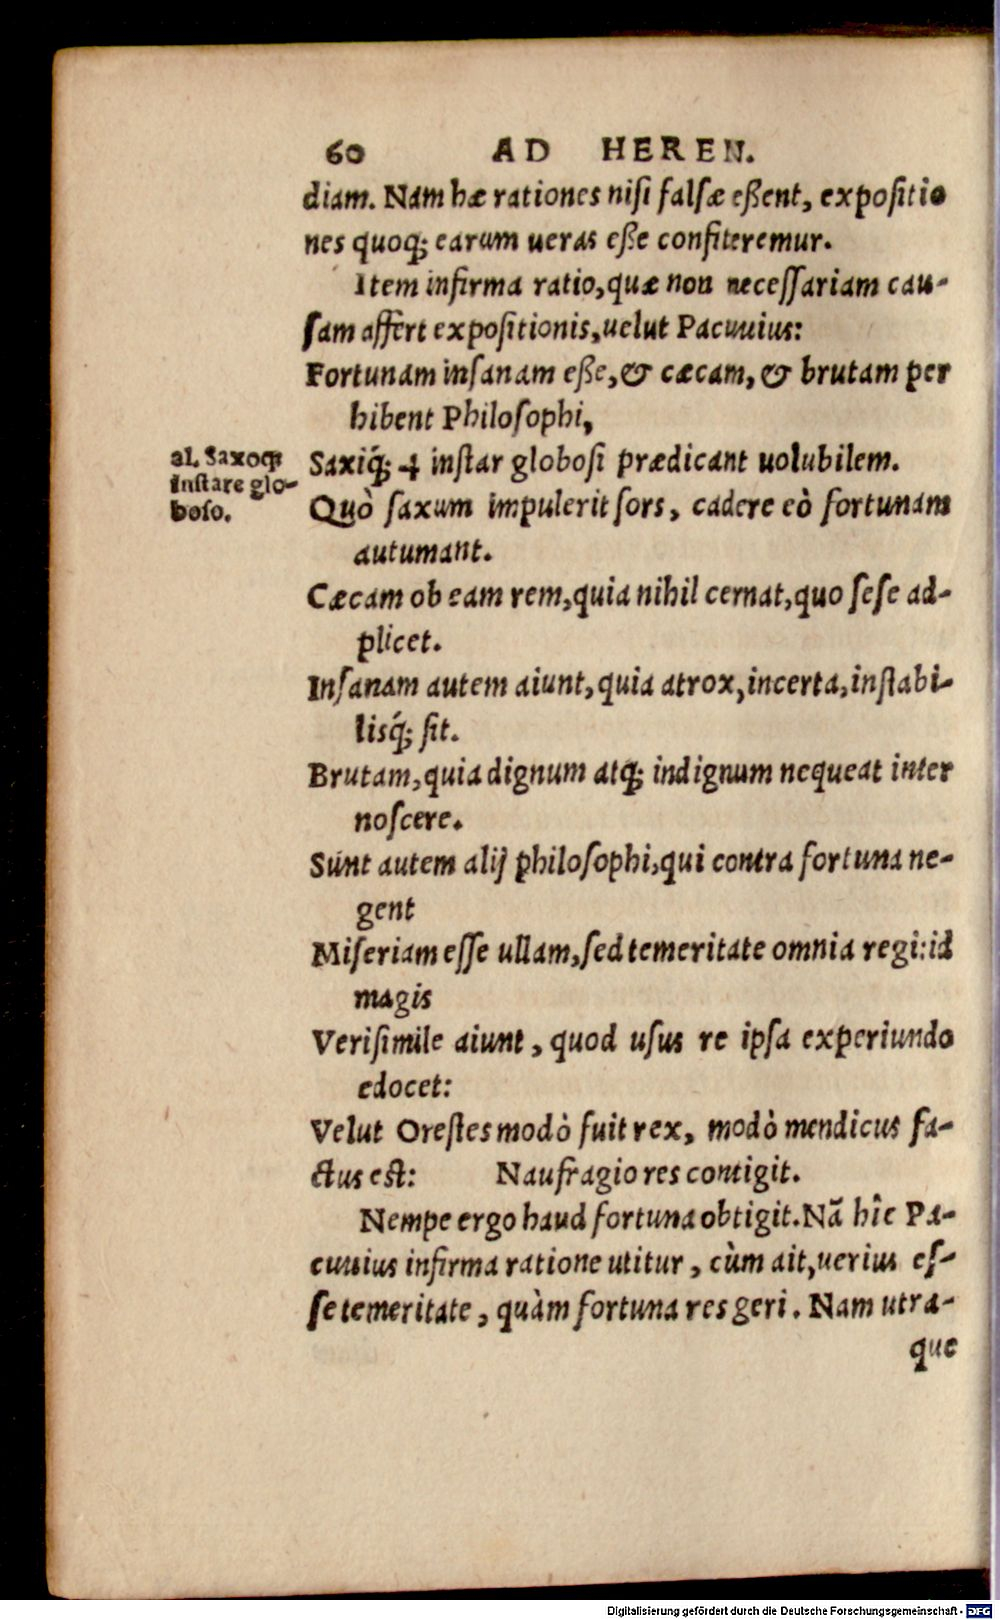 60 AD HEREN.
diam. Nam hæ rationes nisi falsæ eßent, expositio
nes quoq; earum ueras eße confiteremur.
Item infirma ratio, quæ non necessariam cau-
sam affert expositionis, uelut Pacuuius:
Fortunam insanam eße, & cæcam, & brutam per
hibent Philosophi,
al. Saxoq;
instare glo-
boso.
Saxiq́; instar globosi prædicant uolubilem.
Quò saxum impulerit sors, cadere eò fortunam
autumant.
Cæcam ob eam rem, quia nihil cernat, quo sese ad-
plicet.
Insanam autem aiunt, quia atrox, incerta, instabi-
lisq́; sit.
Brutam, quia dignum atq; indignum nequeat inter
noscere.
Sunt autem alij philosophi, qui contra fortuna ne-
gent
Miseriam esse ullam, sed temeritate omnia regi: id
magis
Verisimile aiunt, quod usus re ipsa experiundo
edocet:
Velut Orestes modò fuit rex, modò mendicus fa-
ctus est: Naufragio res contigit.
Nempe ergo haud fortuna obtigit. Nã hîc Pa-
cuuius infirma ratione utitur, cùm ait, uerius es-
se temeritate, quàm fortuna res geri. Nam utra-
que
Digitalisierung gefördert durch die Deutsche Forschungsgemeinschaft - DFG